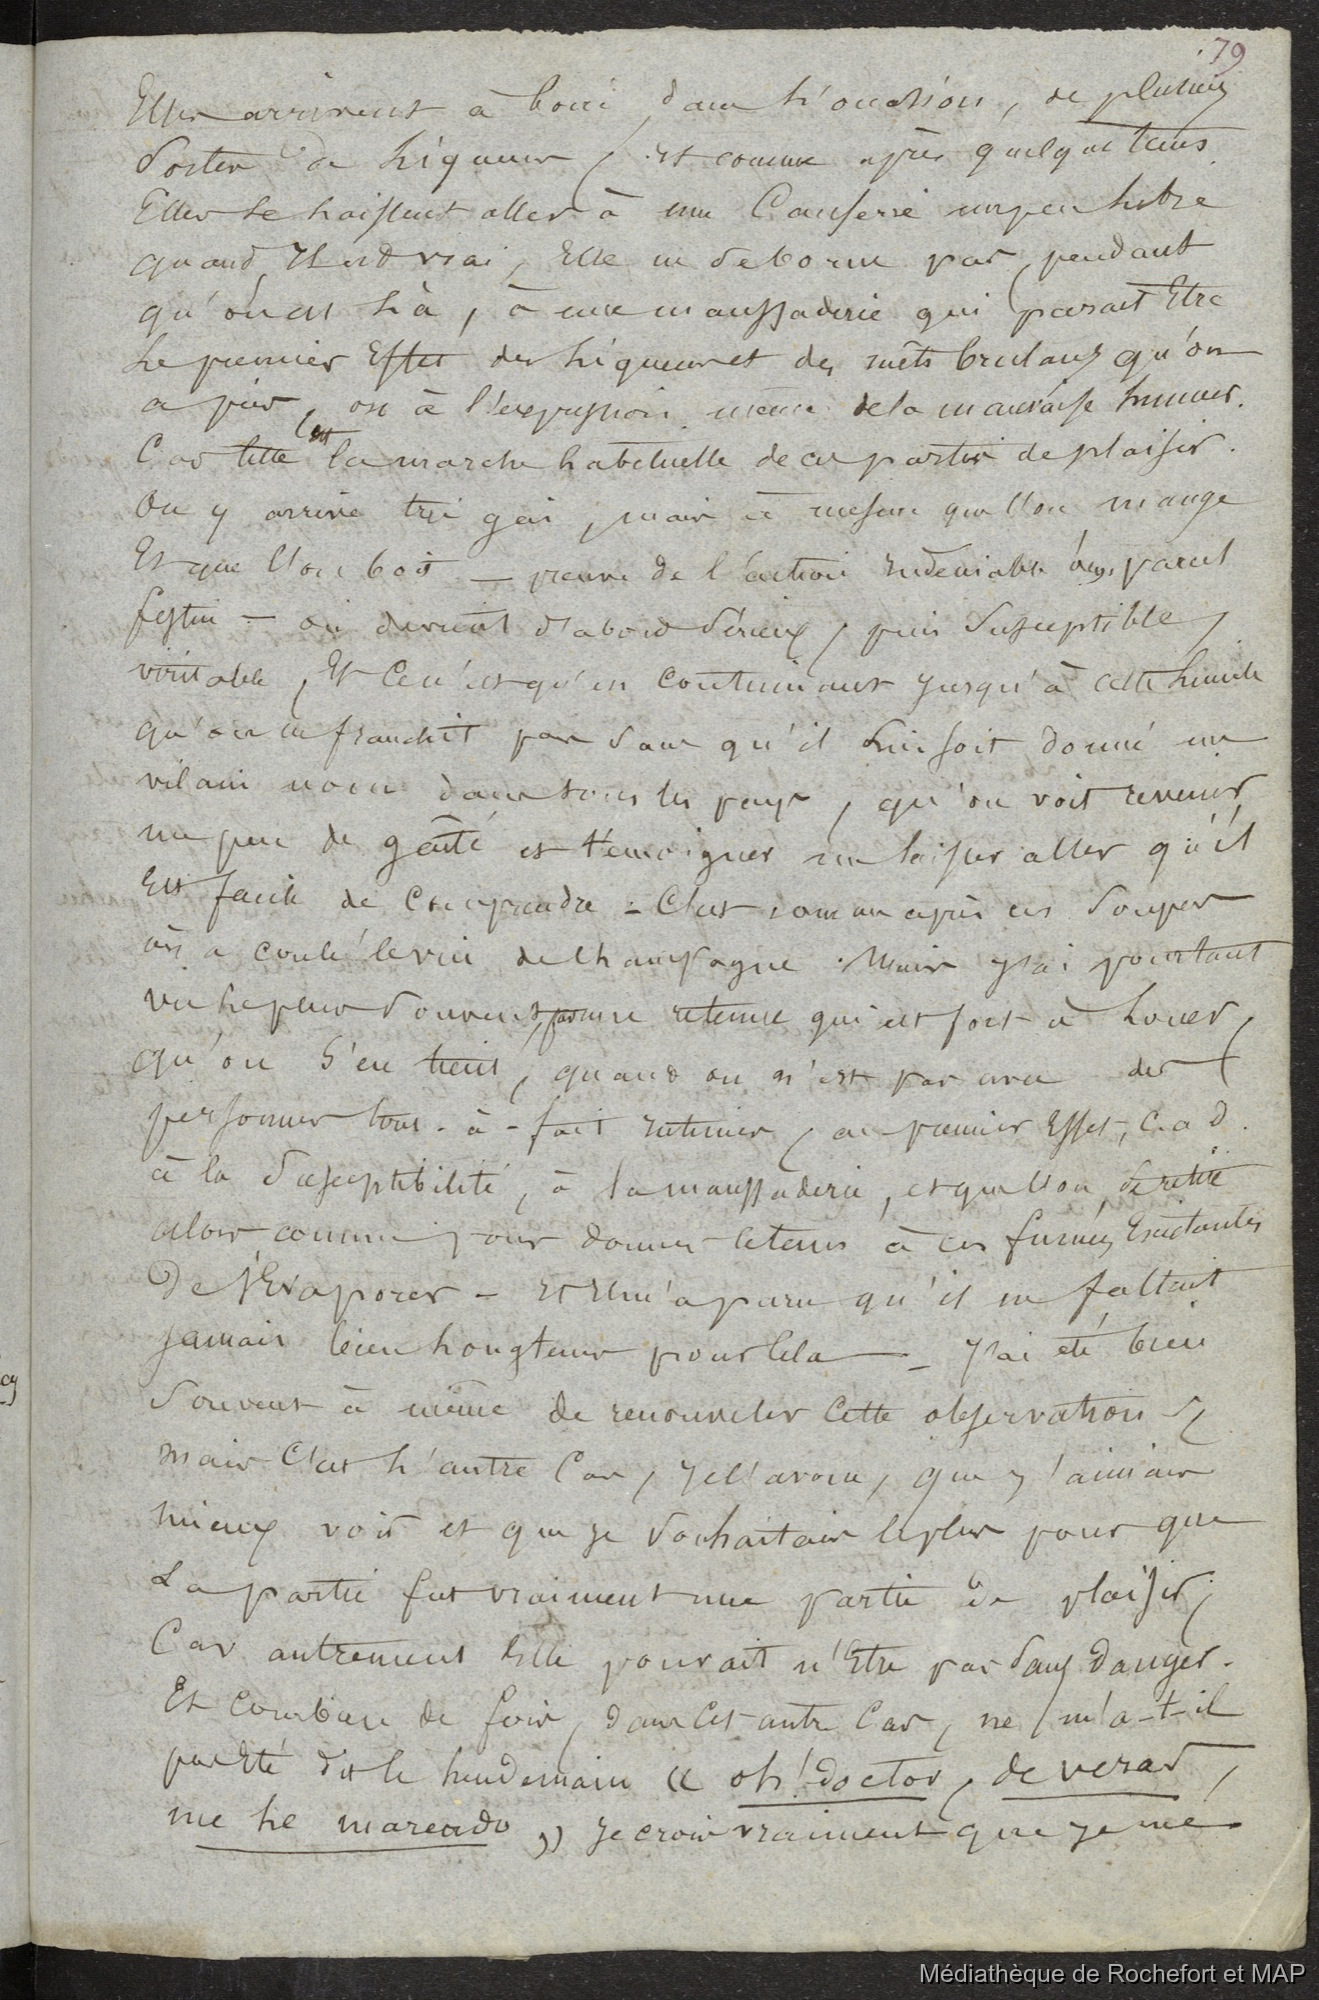 79
Elles arrivent à boire, dans l'occasion, de plusieurs
sortes de liqueurs, et comme après quelque tems
Elles se laissent aller à une Causerie un peu libre
quand Il est vrai, Elle ne se borne pas, pendant
qu'on est là, à une maussaderie qui parait Etre
le premier Effet des liqueurs et des mêts brulans qu'on
a pris, ou à l'expression même de la mauvaise humeur.
Car telle est la marche habituelle de ces parties de plaisir.
On y arrive très gai, mais à mesure que l'on mange
Et que l'on boit — preuve de l'action indéniable d'un pareil
festin — on devient d'abord sérieux, puis susceptible,
irritable, Et ce n'est qu'en continuant jusqu'à cette limite
qu'on ne franchit pas sans qu'il lui soit donné un
vilain nom dans tous les pays, qu'on voit revenir
un peu de gaité et témoigner un laisser aller qu'il
Est facile de comprendre - C'est comme après un souper
où a coulé le vin de Champagne. Mais j'ai pourtant
vu le plus souvent, par une retenue qui est fort à louer,
qu'on s'en tient, quand on n'est pas avec des
personnes tout-à-fait intimes, au premier Effet, c.a.d.
à la susceptibilité, à la maussaderie, et que l'on se retire
alors comme pour donner le tems à ces fumées Excitantes
de s'Evaporer — Et Il m'a paru qu'il ne fallait
jamais bien longtems pour Cela — J'ai été bien
souvent à même de renouveler Cette observation,
mais C'est l'autre Cas, je l'avoue, que j'aimais
mieux voir et que je souhaitais le plus pour que
La partie fut vraiment une partie de plaisir,
Car autrement Elle pourrait n'Etre pas sans danger.
Et Combien de fois, dans Cet autre Cas, ne m'a-t-il
pas Eté dit le lendemain « oh! doctor, de veras,
me he mareado » je crois vraiment que je me
Médiathèque de Rochefort et MAP